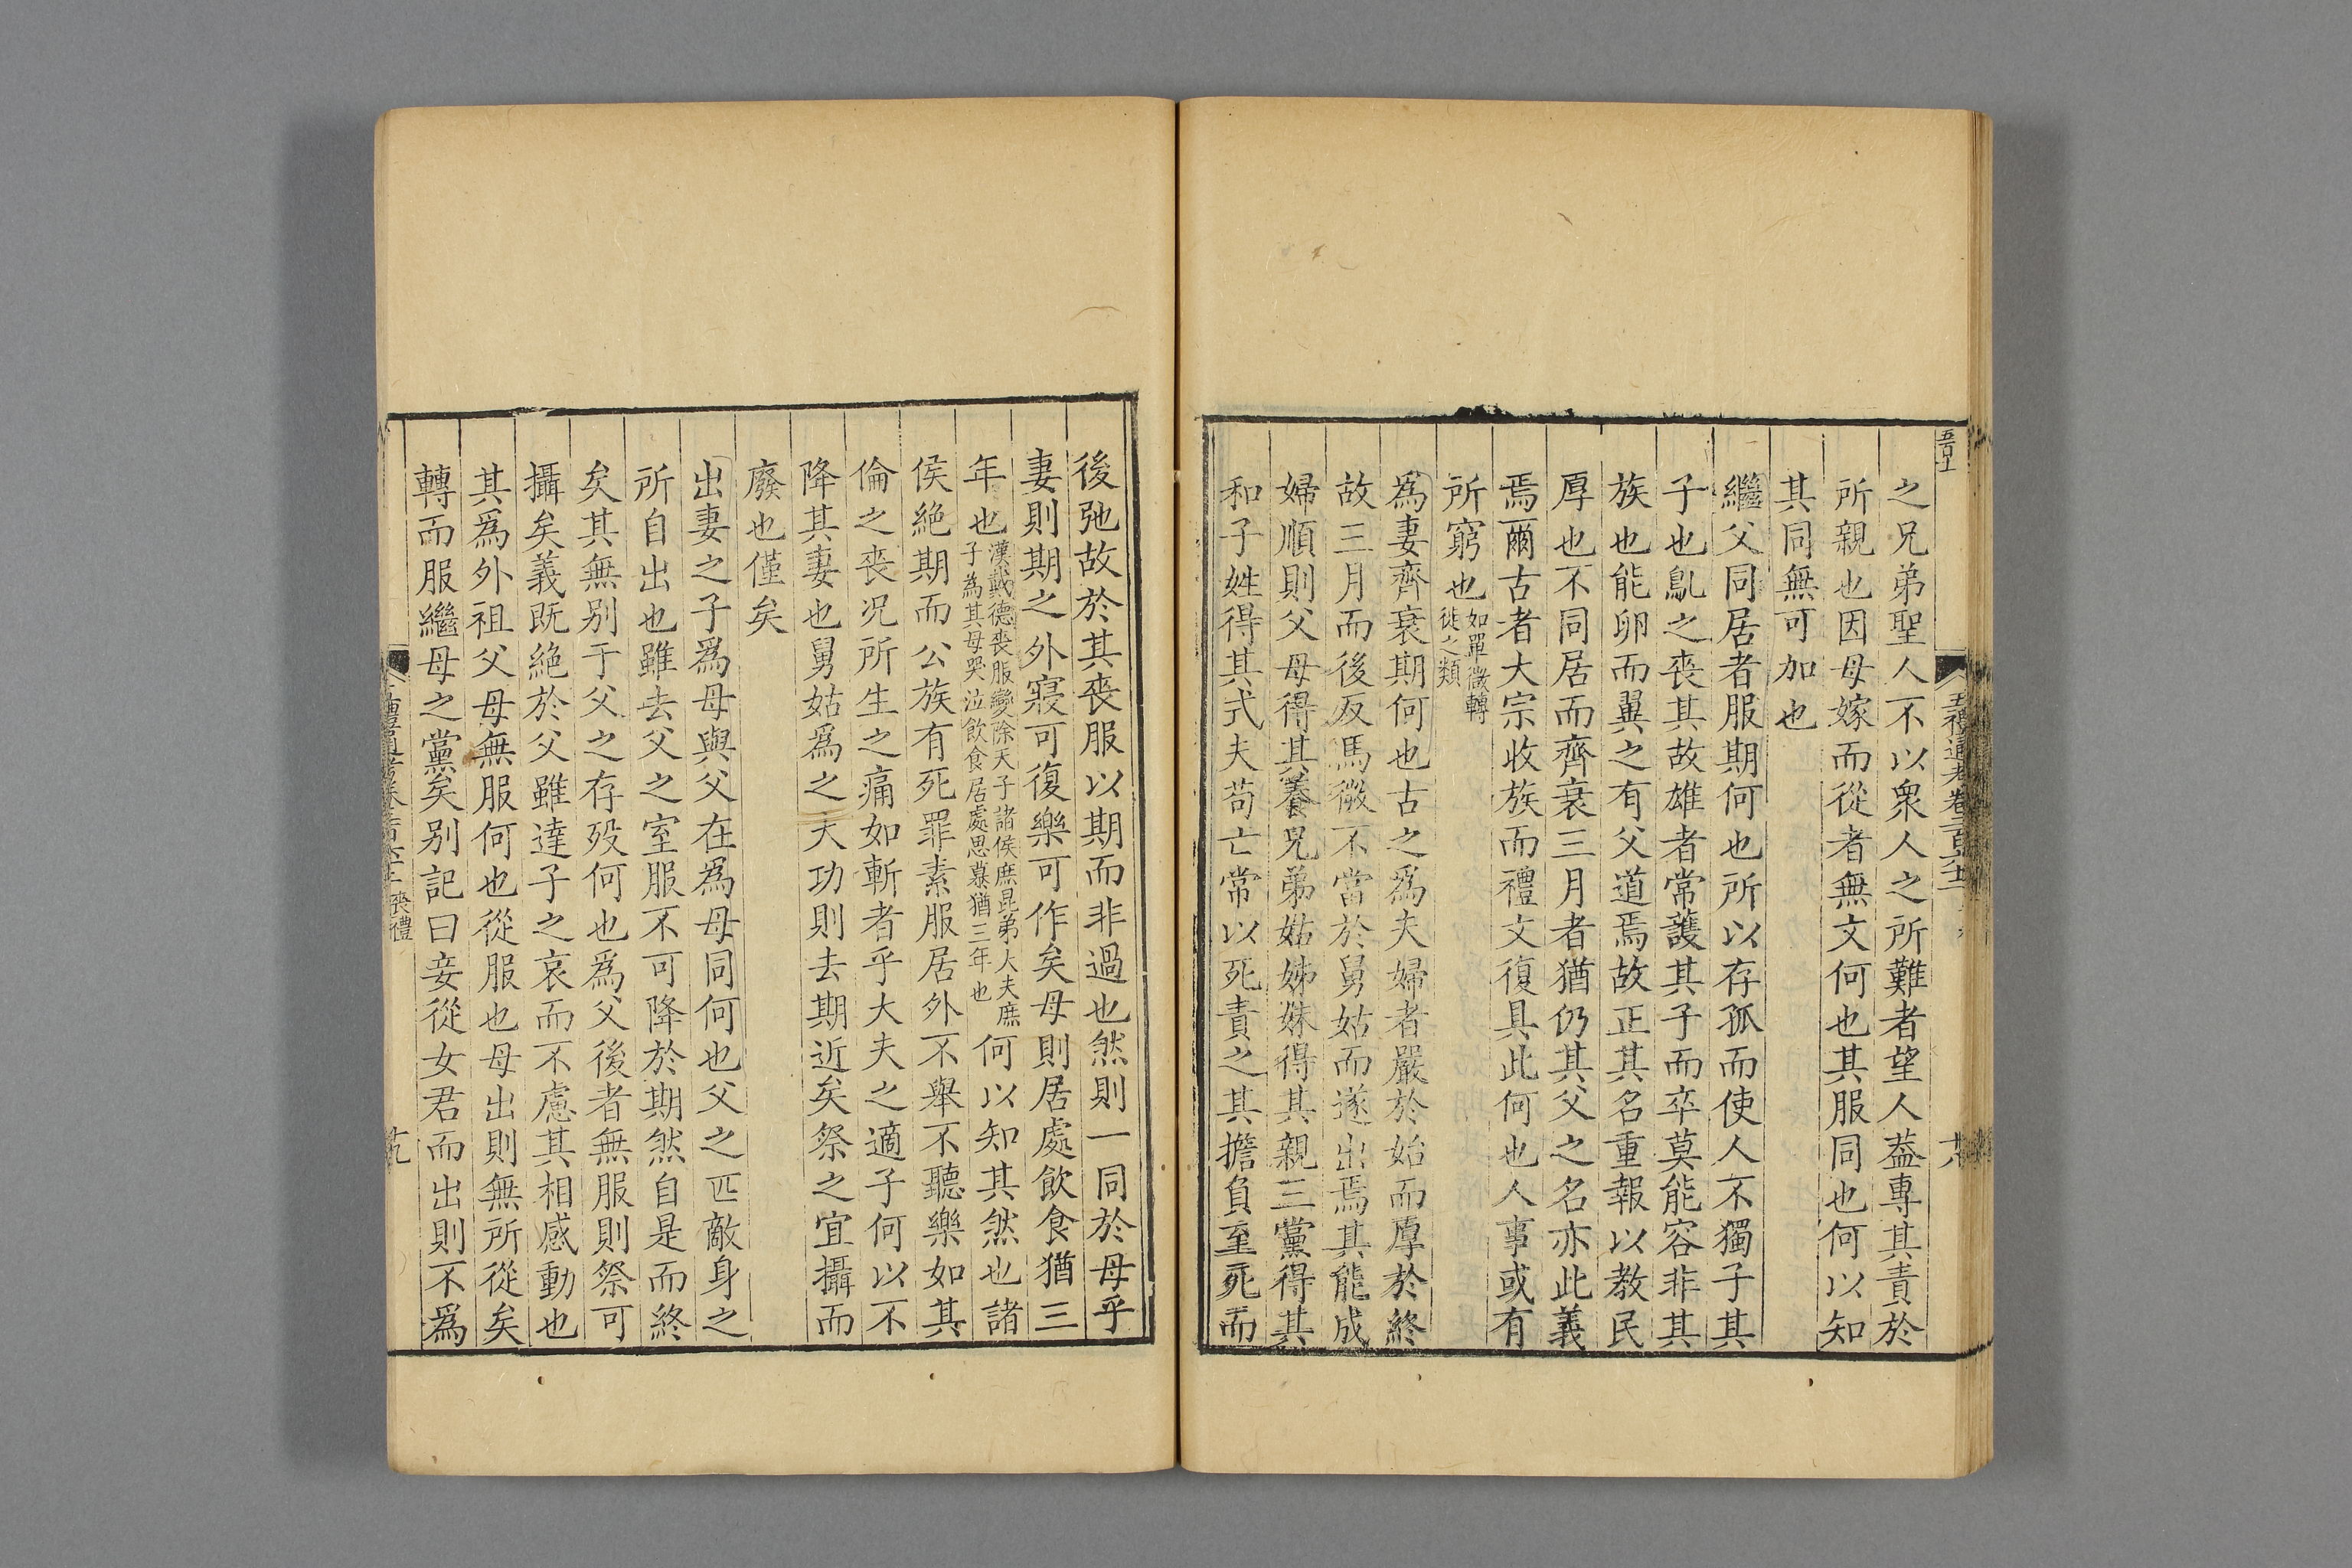 之兄弟聖人不以衆人之所難者望人葢專其責於
所親也因母嫁而從者無文何也其服同也何以知
其同無可加也
繼父同居者服期何也所以存孤而使人不獨子其
子也鳦之喪其故雄者常護其子而卒莫能容非其
族也能卵而翼之有父道焉故正其名重報以教民
厚也不同居而齊衰三月者猶仍其父之名亦此義
焉爾古者大宗收族而禮文復具此何也人事或有
所窮也如單微轉
徙之類
為妻齊衰期何也古之為夫婦者嚴於始而厚於終
故三月而後反馬微不當於舅姑而遂出焉其能成
婦順則父母得其養兄弟姑姊妹得其親三黨得其
和子姓得其式夫苟亡常以死責之其擔負至死而
後弛故於其喪服以期而非過也然則一同於母乎
妻則期之外寢可復樂可作矣母則居處飲食猶三
年也漢戴德喪服變除天子諸侯庶昆弟大夫庶
子為其母哭泣飲食居處思慕猶三年也何以知其然也諸
侯絕期而公族有死罪素服居外不舉不聽樂如其
倫之喪况所生之痛如斬者乎大夫之適子何以不
降其妻也舅姑爲之大功則去期近矣祭之宜攝而
廢也僅矣
出妻之子爲母與父在爲母同何也父之匹敵身之
所自出也雖去父之室服不可降於期然自是而終
矣其無别于父之存歿何也爲父後者無服則祭可
攝矣義既絶於父雖達子之哀而不慮其相感動也
其爲外祖父母無服何也從服也母出則無所從矣
轉而服繼母之黨矣别記曰妾從女君而出則不爲